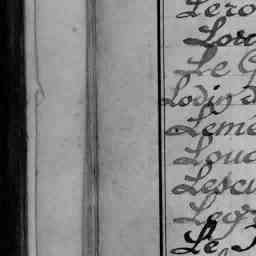 Lero
Lor
Le G
Lodin d
Lemé
Loud
Lescu
Legr
Le